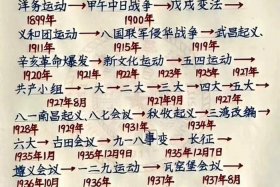 洋务运动→甲午中日战争→戊戌变法→
1899年 1900年
义和团运动→八国联军侵华战争→武昌起义、
1911年 1915年 1919年
辛亥革命爆发→新文化运动→五四运动→
1920年 1921年 1922年 1923年 1924年 1927年
共产小组→一大→二大→三大→四大→五大→
1927年8月 1927年9月
八一南昌起义、八七会议→秋收起义→三湾改编→
1928年 1929年 1931年 1934年
六大→古田会议→九一八事变→长征→
1935年1月 1935年12月9日 1935年12月7日
遵义会议→一二九运动→瓦窑堡会议→
1936年10月 1936年 1937年 1937年8月